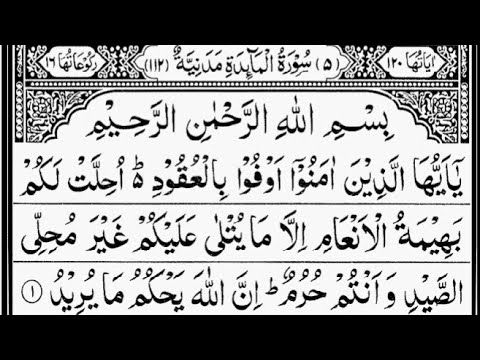 اٰيَاتُهَا ١٢٠ (٥) سُوْرَةُ الْمَآئِدَةِ مَدَنِيَّةٌ (١١٢) رُكُوْعَاتُهَا ١٦
بِسْمِ اللّٰهِ الرَّحْمٰنِ الرَّحِيْمِ
يٰۤاَيُّهَا الَّذِيْنَ اٰمَنُوْۤا اَوْفُوْا بِالْعُقُوْدِ ؕ۬ اُحِلَّتْ لَكُمْ
بَهِيْمَةُ الْاَنْعَامِ اِلَّا مَا يُتْلٰى عَلَيْكُمْ غَيْرَ مُحِلِّى
الصَّيْدِ وَ اَنْتُمْ حُرُمٌ ؕ اِنَّ اللّٰهَ يَحْكُمُ مَا يُرِيْدُ ١